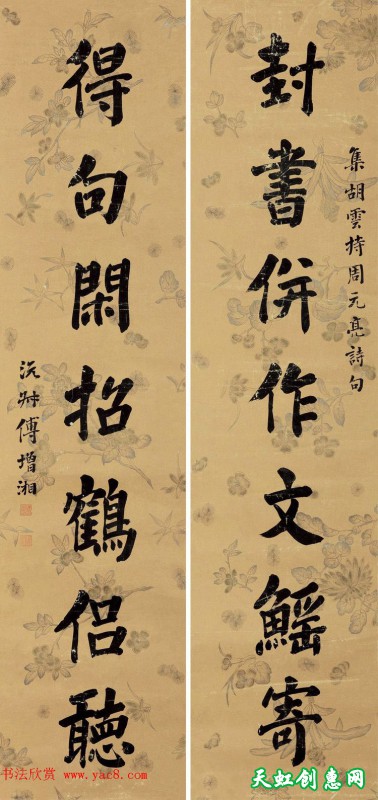 集胡雲持周元亮詩句
封書併作文鰩寄
得句閑招鶴侶聽
沅叔傅增湘
书法欣赏 www.yac8.com
天虹创惠网